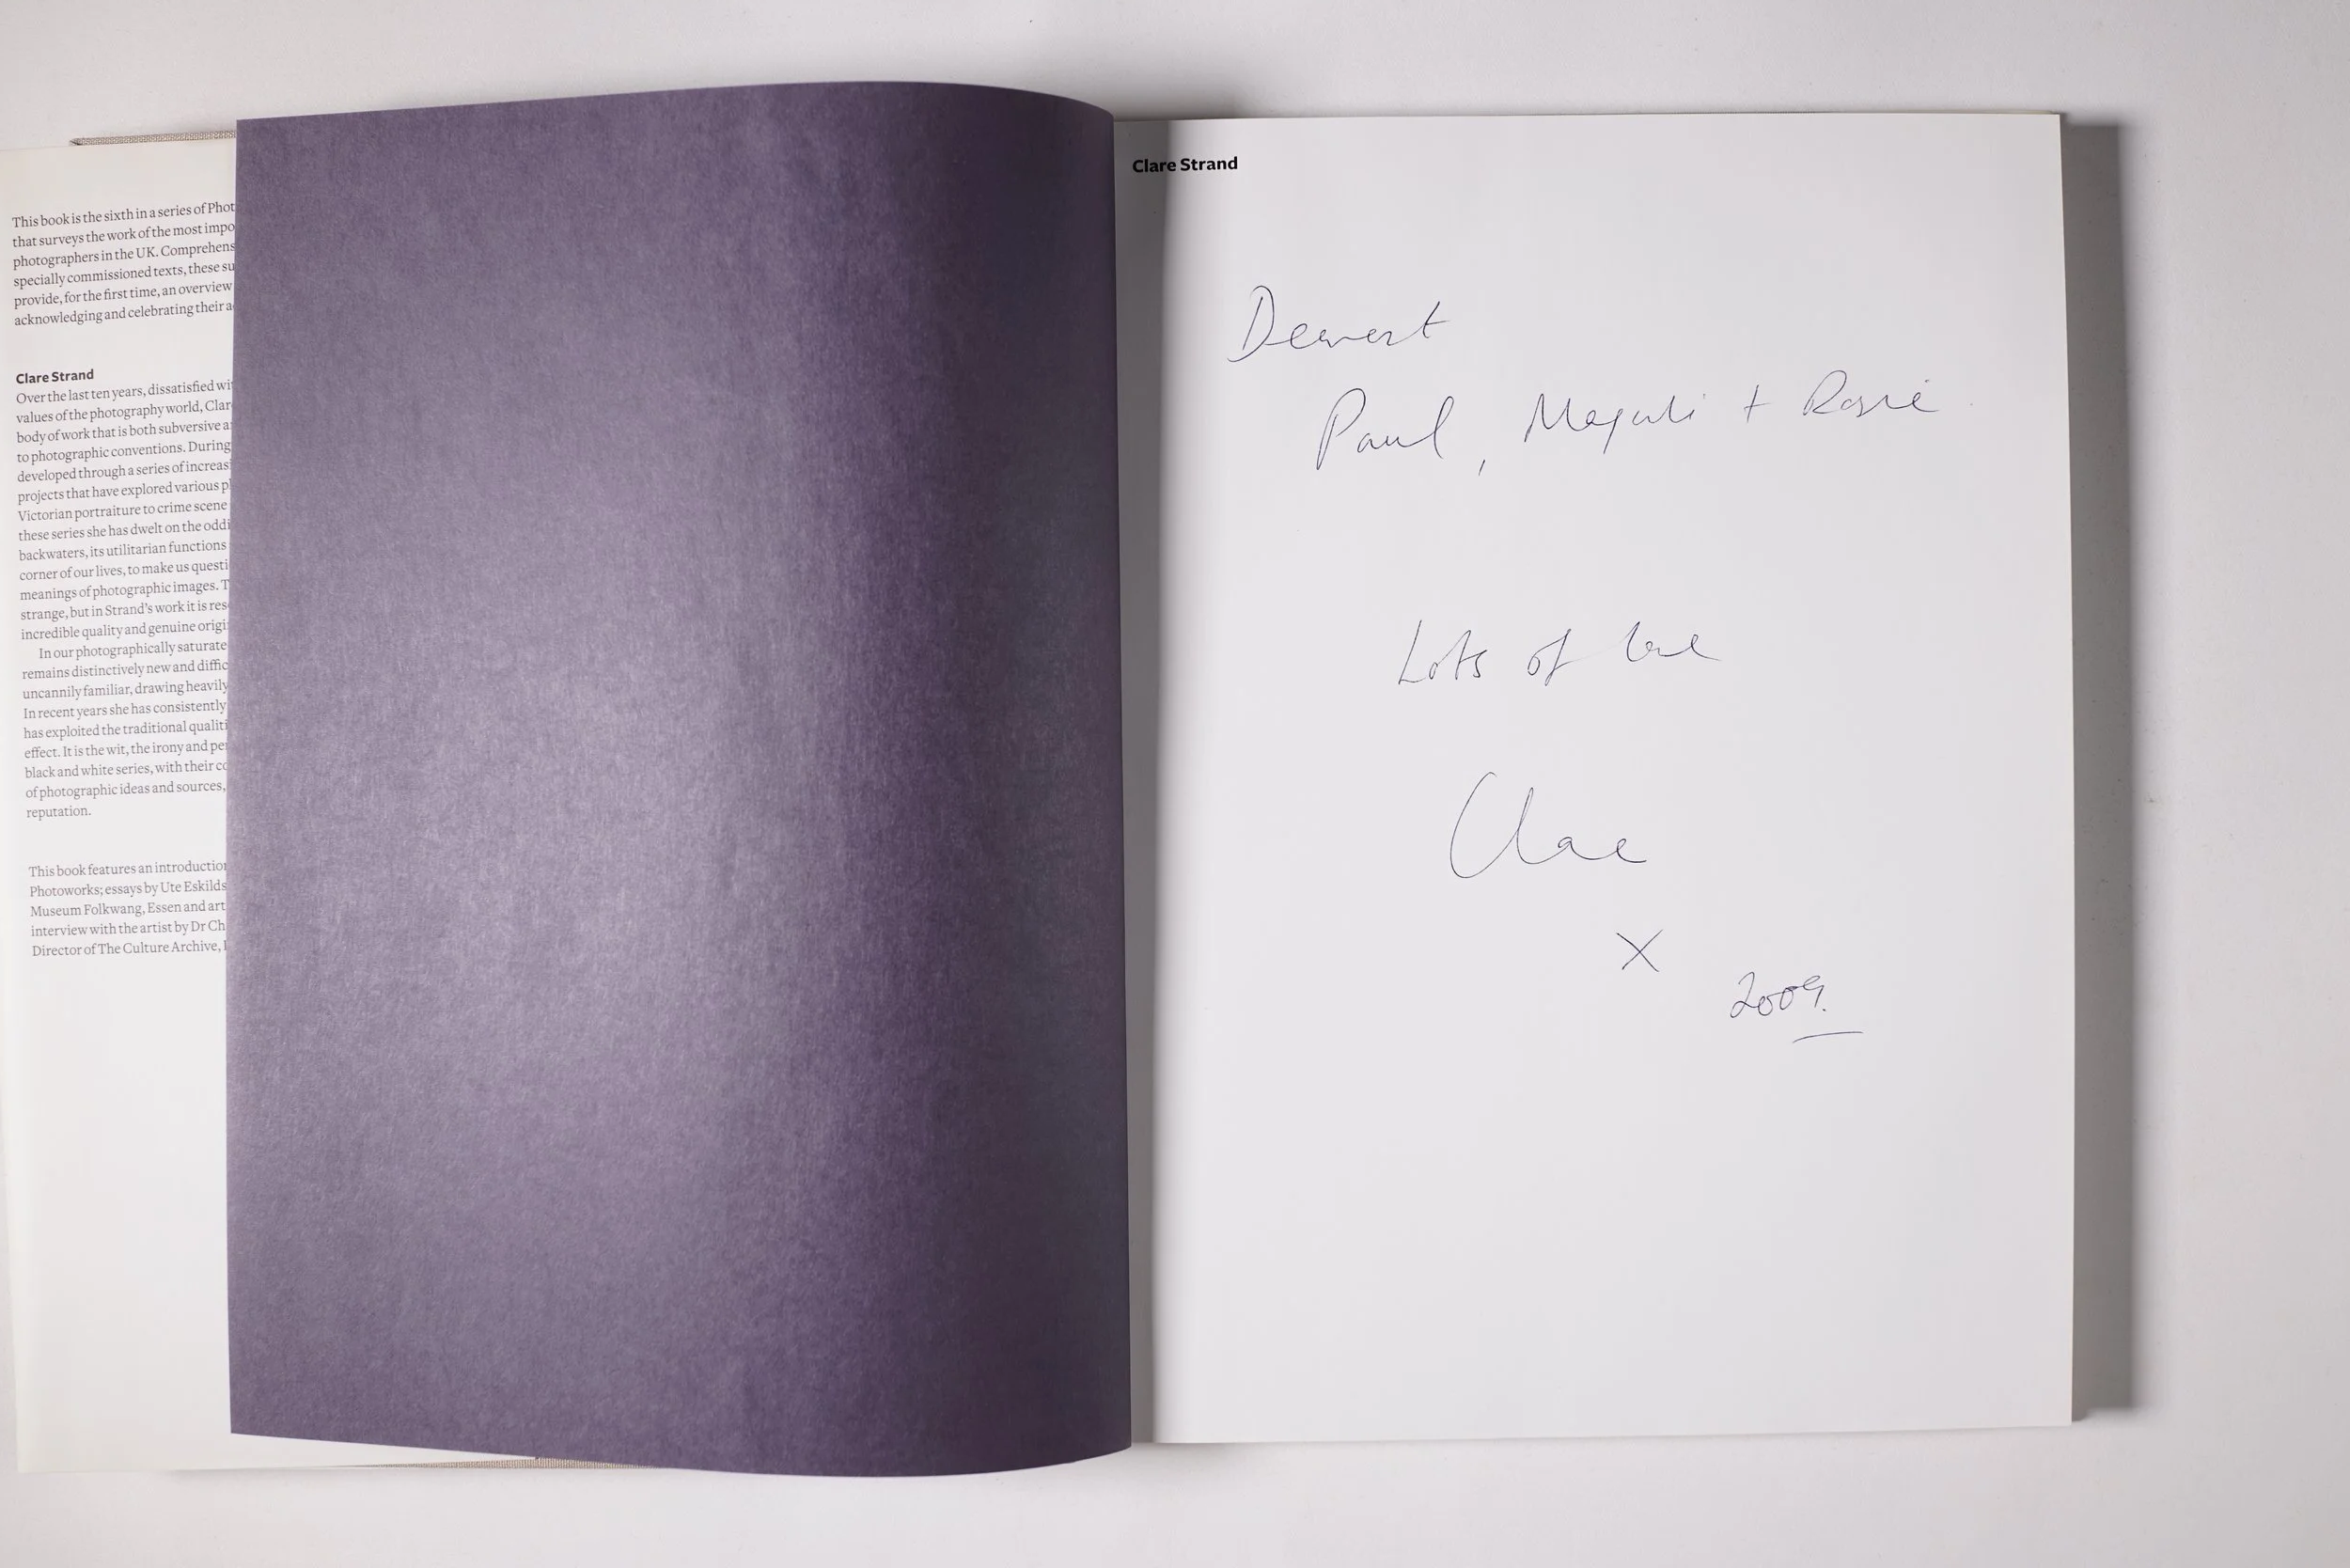 This book is the sixth in a series of Phot
that surveys the work of the most impo
photographers in the UK. Comprehens
specially commissioned texts, these su
provide, for the first time, an overview
acknowledging and celebrating their a
Clare Strand
Over the last ten years, dissatisfied wi
values of the photography world, Clar
body of work that is both subversive a
to photographic conventions. During
developed through a series of increas
projects that have explored various p
Victorian portraiture to crime scene
these series she has dwelt on the oddi
backwaters, its utilitarian functions
corner of our lives, to make us questi
meanings of photographic images. T
strange, but in Strand's work it is res
incredible quality and genuine origi
In our photographically saturate
remains distinctively new and diffic
uncannily familiar, drawing heavily
In recent years she has consistently
has exploited the traditional qualiti
effect. It is the wit, the irony and pe
black and white series, with their co
of photographic ideas and sources,
reputation.
This book features an introduction
Photoworks; essays by Ute Eskilds
Museum Folkwang, Essen and art
interview with the artist by Dr Ch
Director of The Culture Archive,
Clare Strand
Dearest
Paul, Magali + Rosie
Lots of love
Clare
X
2009.